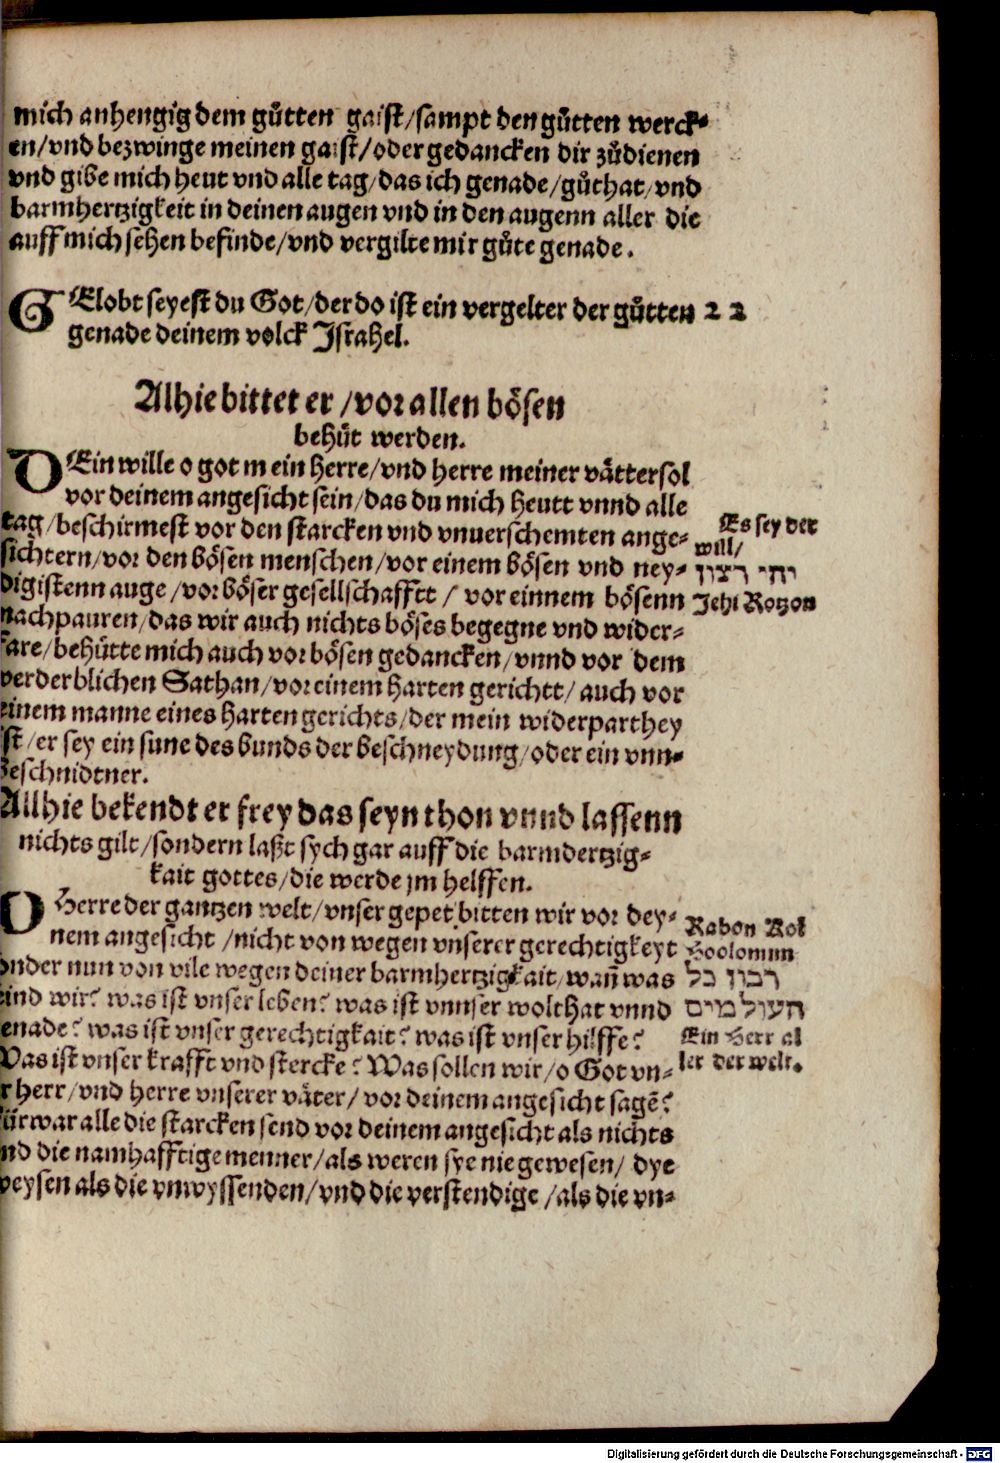 mich anhengig dem gůtten gaist/sampt den gůtten werck⸗
en/vnd bezwinge meinen gaist/oder gedancken dir zůdienen
vnd gibe mich heut vnd alle tag/das ich genade/gůthat/vnd
barmhertzigkeit in deinen augen vnd in den augenn aller die
auff mich sehen befinde/vnd vergilte mir gůte genade.
GElobt seyest du Got/der do ist ein vergelter der gůtten 22
genade deinem volck Israhel.
Alhie bittet er/vor allen bösen
behůt werden.
DEin wille o got mein herre/vnd herre meiner vättersol
vor deinem angesicht sein/das du mich heutt vnnd alle
tag/beschirmest vor den starcken vnd vnuerschemten ange⸗
sichtern/vor den bösen menschen/vor einem bösen vnd ney⸗
digistenn auge/vor böser gesellschafft/vor einnem bösenn
nachpauren/das wir auch nichts böses begegne vnd wider⸗
fare/behütte mich auch vor bösen gedancken/vnnd vor dem
verderblichen Sathan/vor einem harten gerichtt/auch vor
einem manne eines harten gerichts/der mein widerparthey
ist/er sey ein sune des bunds der beschneydung/oder ein vnn⸗
beschnidtner.
Es sey der
will/
יהי רצון
Jehi Rotzon
Allhie bekendt er frey das seyn thon vnnd lassenn
nichts gilt/sondern laßt sych gar auff die barmdertzig⸗
kait gottes/die werde jm helffen.
O Herre der gantzen welt/vnser gepet bitten wir vor dey⸗
nem angesicht/nicht von wegen vnserer gerechtigkeyt
onder nun von vile wegen deiner barmhertzigkait/wañ was
sind wir? was ist vnser leben? was ist vnnser wolthat vnnd
enade? was ist vnser gerechtigkait? was ist vnser hilffe?
Was ist vnser krafft vnd stercke? Was sollen wir/o Got vn⸗
r herr/vnd herre vnserer väter/vor deinem angesicht sagē?
fürwar alle die starcken send vor deinem angesicht als nichts
nd die namhafftige menner/als weren sye nie gewesen/dye
weysen als die vnwyssenden/vnd die verstendige/als die vn⸗
Rabon Kol
Hoolomim
רבון כל
העולמים
Ein Herr al
ler der welt.
Digitalisierung gefördert durch die Deutsche Forschungsgemeinschaft - DFG